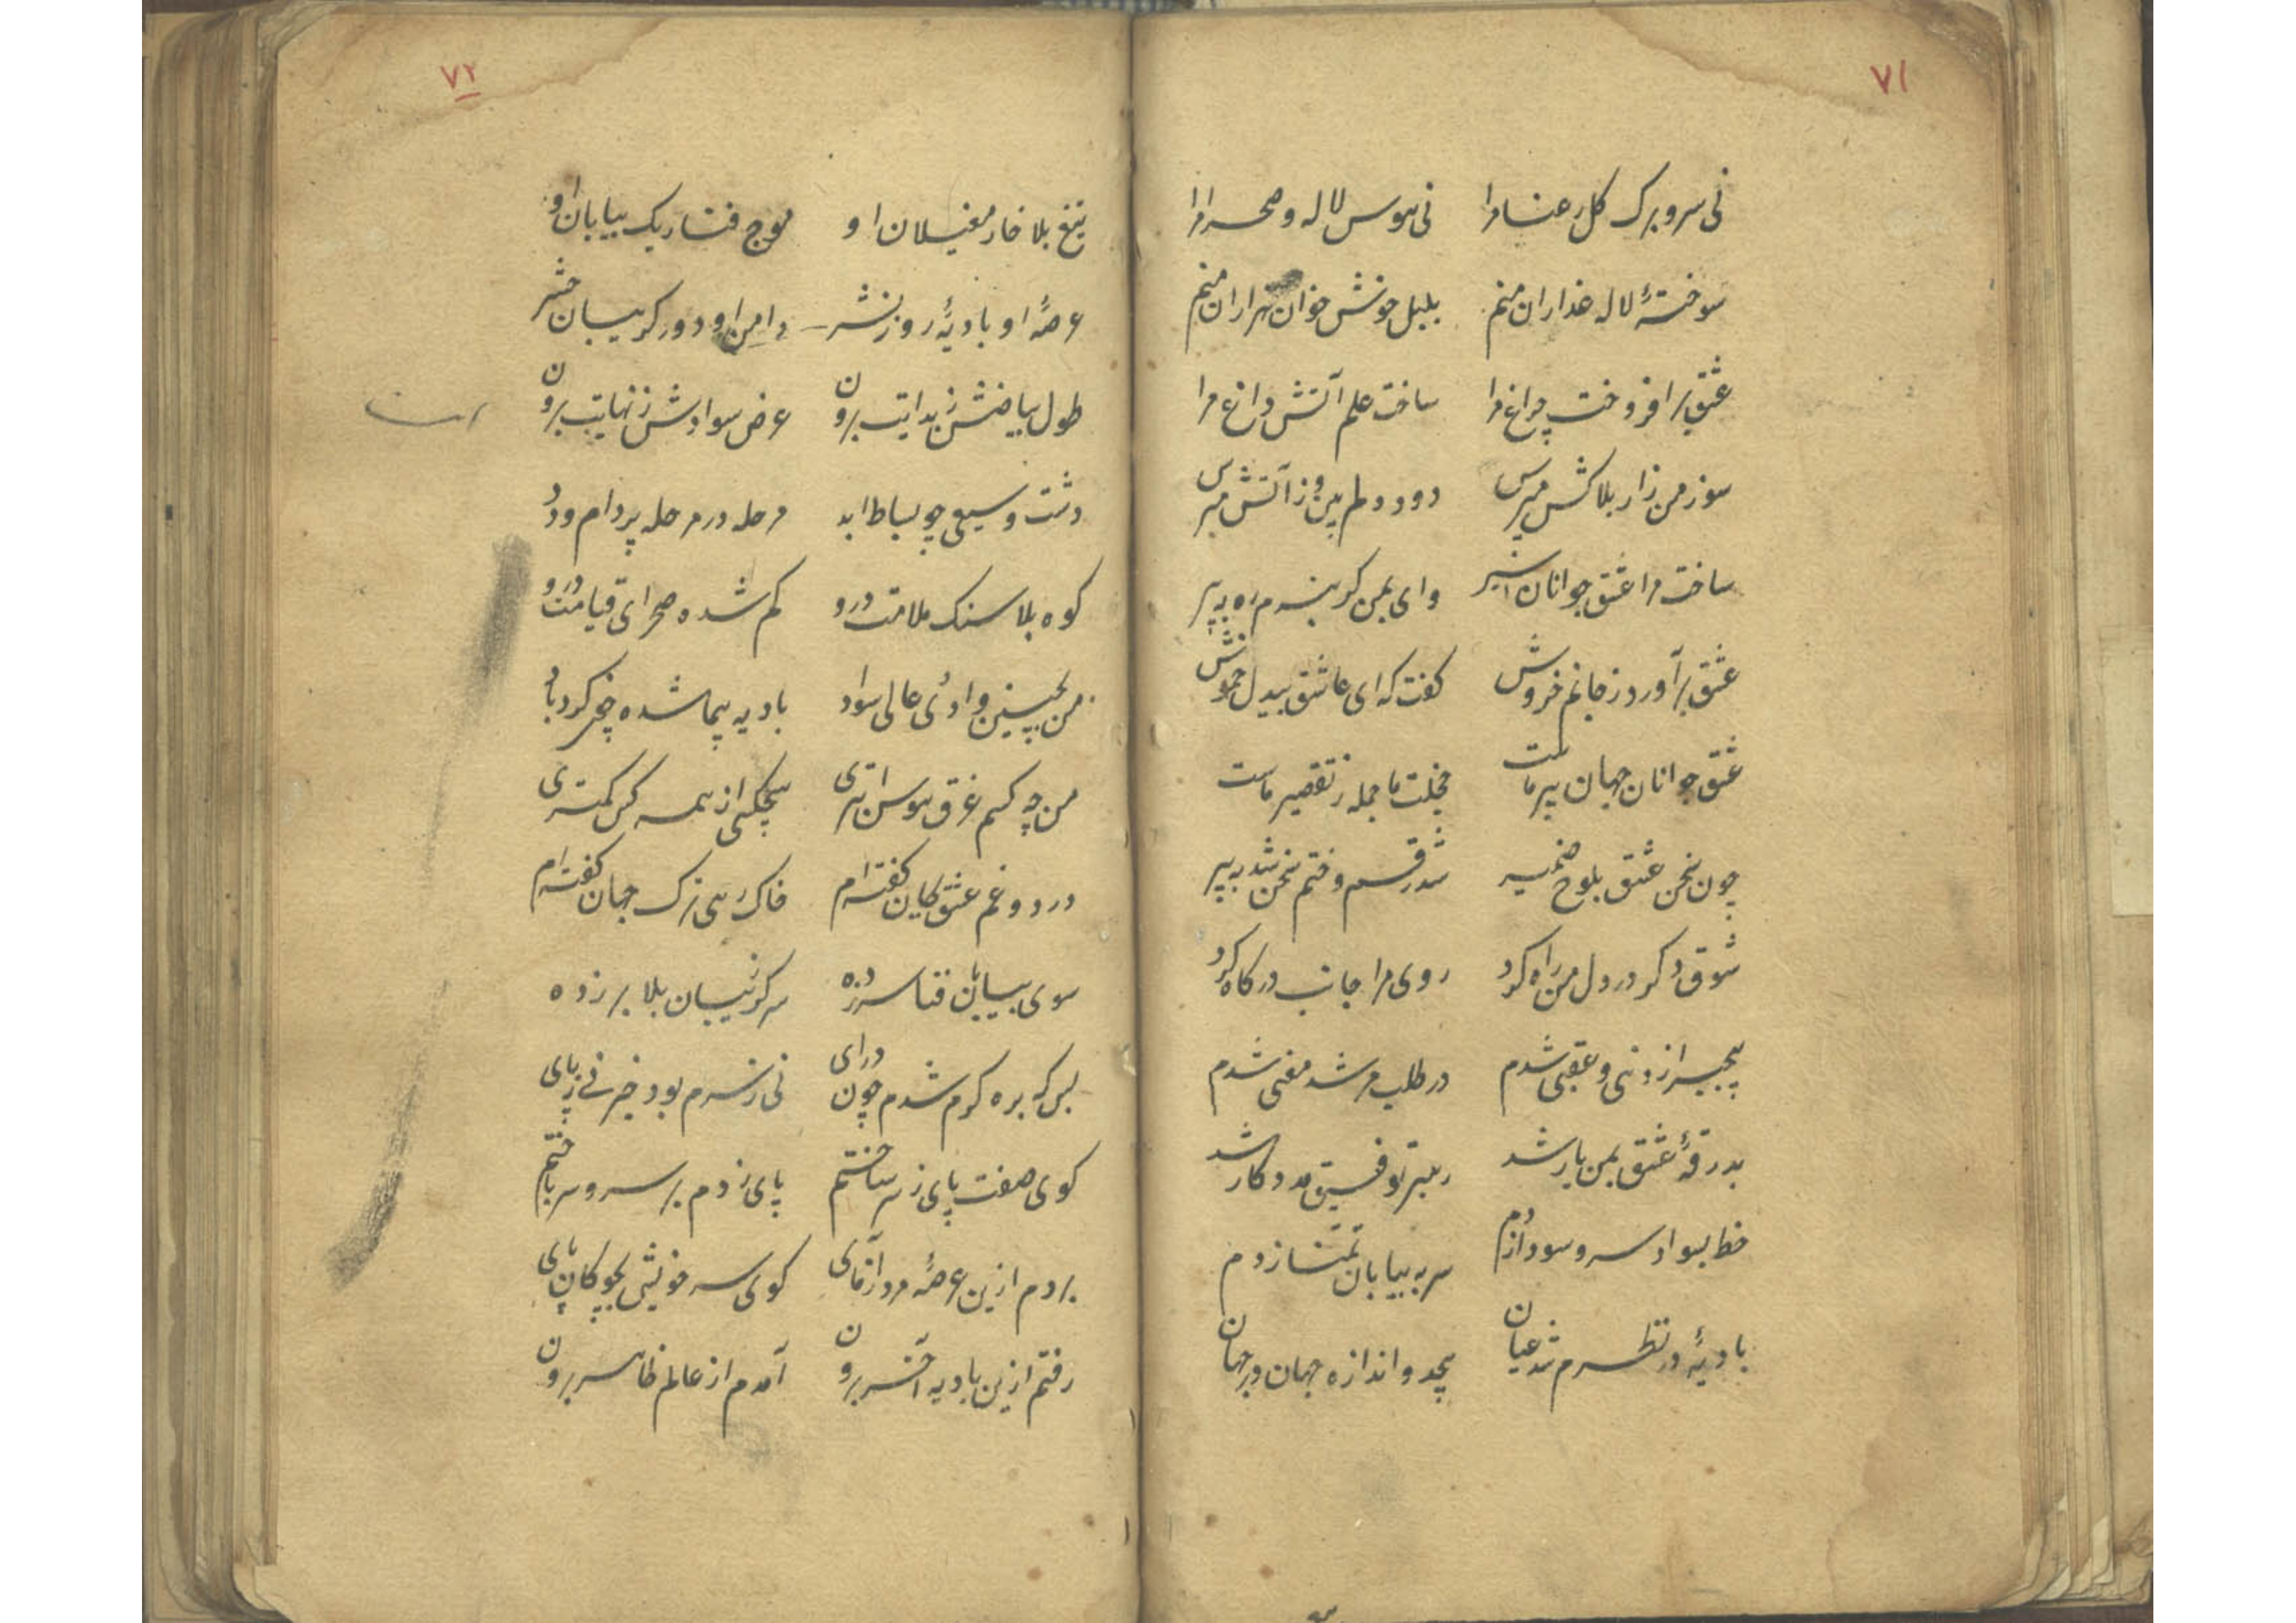 ۷۱
نی سر و برک کل رعنا مرا نی هوس لاله و صحرا مرا
سوختهٔ لاله عذاران منم بلبل خوش خوان هزاران منم
عشق برافروخت چراغ مرا ساخت علم آتش داغ مرا
سوز من زار بلاکش مپرس دود دلم بین وز آتش مپرس
ساخت مرا عشق جوانان اسیر وای بمن کر نبرم ره به پیر
عشق برآورد ز جانم خروش کفت که ای عاشق بیدل خموش
عشق جوانان جهان پیر ماست خجلت ما جمله ز تقصیر ماست
چون سخن عشق بلوح ضمیر شد رقم و ختم سخن شد به پیر
شوق دکر در دل من راه کرد روی مرا جانب درکاه کرد
بیخبر از دنیی و عقبی شدم در طلب مرشد معنی شدم
بدرقهٔ عشق بمن یار شد رهبر توفیق مددکار شد
خط بسواد سر و سودا زدم سر به بیابان تمنا زدم
بادیهٔ در نظرم شد عیان بیحد و اندازه جهان در جهان
۷۲
تیغ بلا خار مغیلان او موج فنا ریک بیابان او
عرصهٔ او بادیهٔ روز نشر دامن او دور کریبان حشر
طول بیاضش ز بدایت برون عرض سوادش ز نهایت برون
دشت وسیعی چو بساط ابد مرحله در مرحله پر دام و دد
کوه بلا سنک ملامت درو کم شده صحرای قیامت درو
من بچنین وادئ عالی سواد بادیه پیما شده چون کردباد
من چه کسم غرق هوس ابتری هیچکسی از همه کس کمتری
درد و غم عشق بجان کفته‌ام خاک رهی ترک جهان کفته‌ام
سوی بیابان فنا سر زده سر ز کریبان بلا بر زده
بس که بره کرم شدم چون درای نی ز سرم بود خبر نی ز پای
کوی صفت پای ز سر ساختم پای زدم بر سر و سر باختم
بردم ازین عرصهٔ مرد آزمای کوی سر خویش بچوکان پای
رفتم ازین بادیه آخر برون آمدم از عالم ظاهر برون